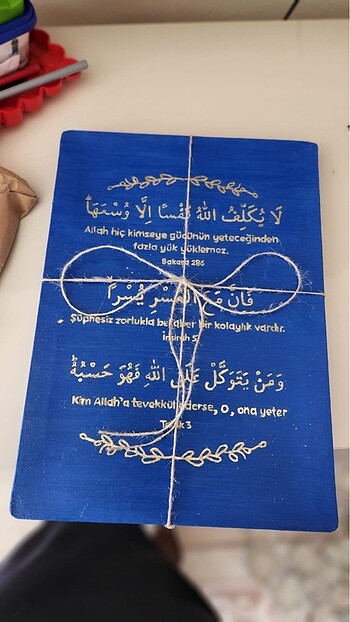 لَا يُكَلِّفُ اللّٰهُ نَفْسًا اِلَّا وُسْعَهَاۜ
Allah hiç kimseye gücünün yeteceğinden
fazla yük yüklemez.
Bakara 286
فَاِنَّ مَعَ الْعُسْرِ يُسْرًا
Şüphesiz zorlukla beraber bir kolaylık vardır.
İnşirah 5
وَمَنْ يَتَوَكَّلْ عَلَى اللّٰهِ فَهُوَ حَسْبُهُۜ
Kim Allah'a tevekkül ederse, O, ona yeter
Talak 3